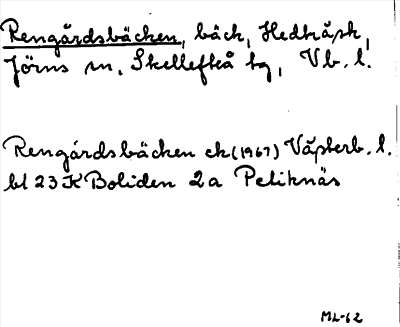 Rengårdsbäcken, bäck, Hedträsk,
Jörns sn, Skellefteå tg, Vb. l.
Rengårdsbäcken ek (1967) Västerb. l.
bl 23 K Boliden 2a Petiknäs
ML-62